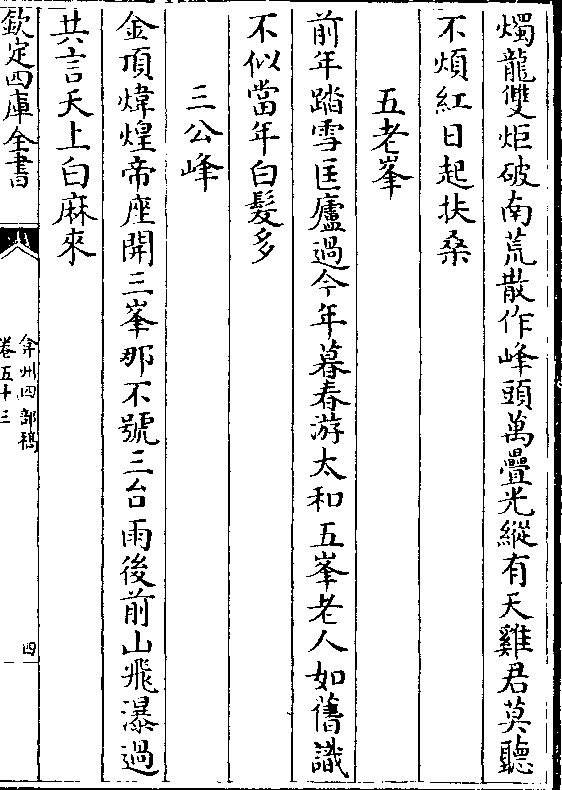 燭龍雙炬破南荒散作峰頭萬疊光縱有天雞君莫聽
不煩紅日起扶桑
五老峯
前年踏雪匡廬過今年暮春游太和五峯老人如舊識
不似當年白髮多
三公峰
金頂煒煌帝座開三峯那不號三台雨後前山飛瀑過
共言天上白麻來
欽定四庫全書
弇州四部稿
卷五十三
四